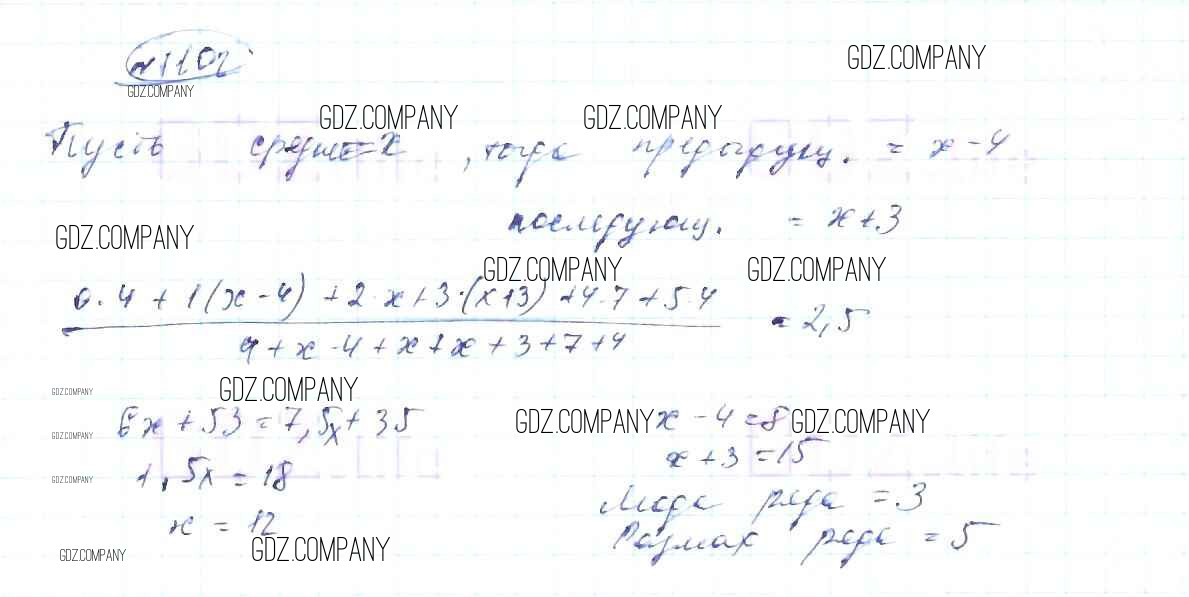 №1102
GDZ.COMPANY
GDZ.COMPANY
GDZ.COMPANY GDZ.COMPANY
Пусть средне=x , тогда предыдущ. = x-4
последующ. = x+3
GDZ.COMPANY
GDZ.COMPANY GDZ.COMPANY
0·4 + 1(x-4) + 2·x + 3·(x+3) + 4·7 + 5·4
4 + x - 4 + x + x + 3 + 7 + 4
= 2,5
GDZ.COMPANY GDZ.COMPANY
6x + 53 = 7,5x + 35
GDZ.COMPANY x - 4 = 8 GDZ.COMPANY
GDZ.COMPANY
1,5x = 18
x + 3 = 15
GDZ.COMPANY
x = 12
Мода ряда = 3
GDZ.COMPANY GDZ.COMPANY
Размах ряда = 5